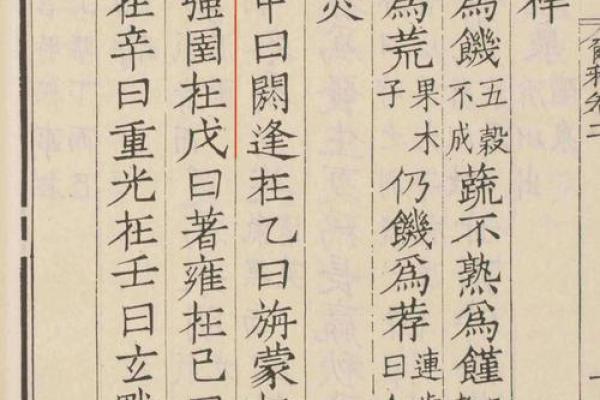 雅卷二
祥
爲饑五穀不成蔬不熟爲饉
爲荒果木子仍饑爲荐連歲曰
災
甲曰閼逢在乙曰旃蒙
強圉在戊曰著雍在己曰
在辛曰重光在壬曰玄黓